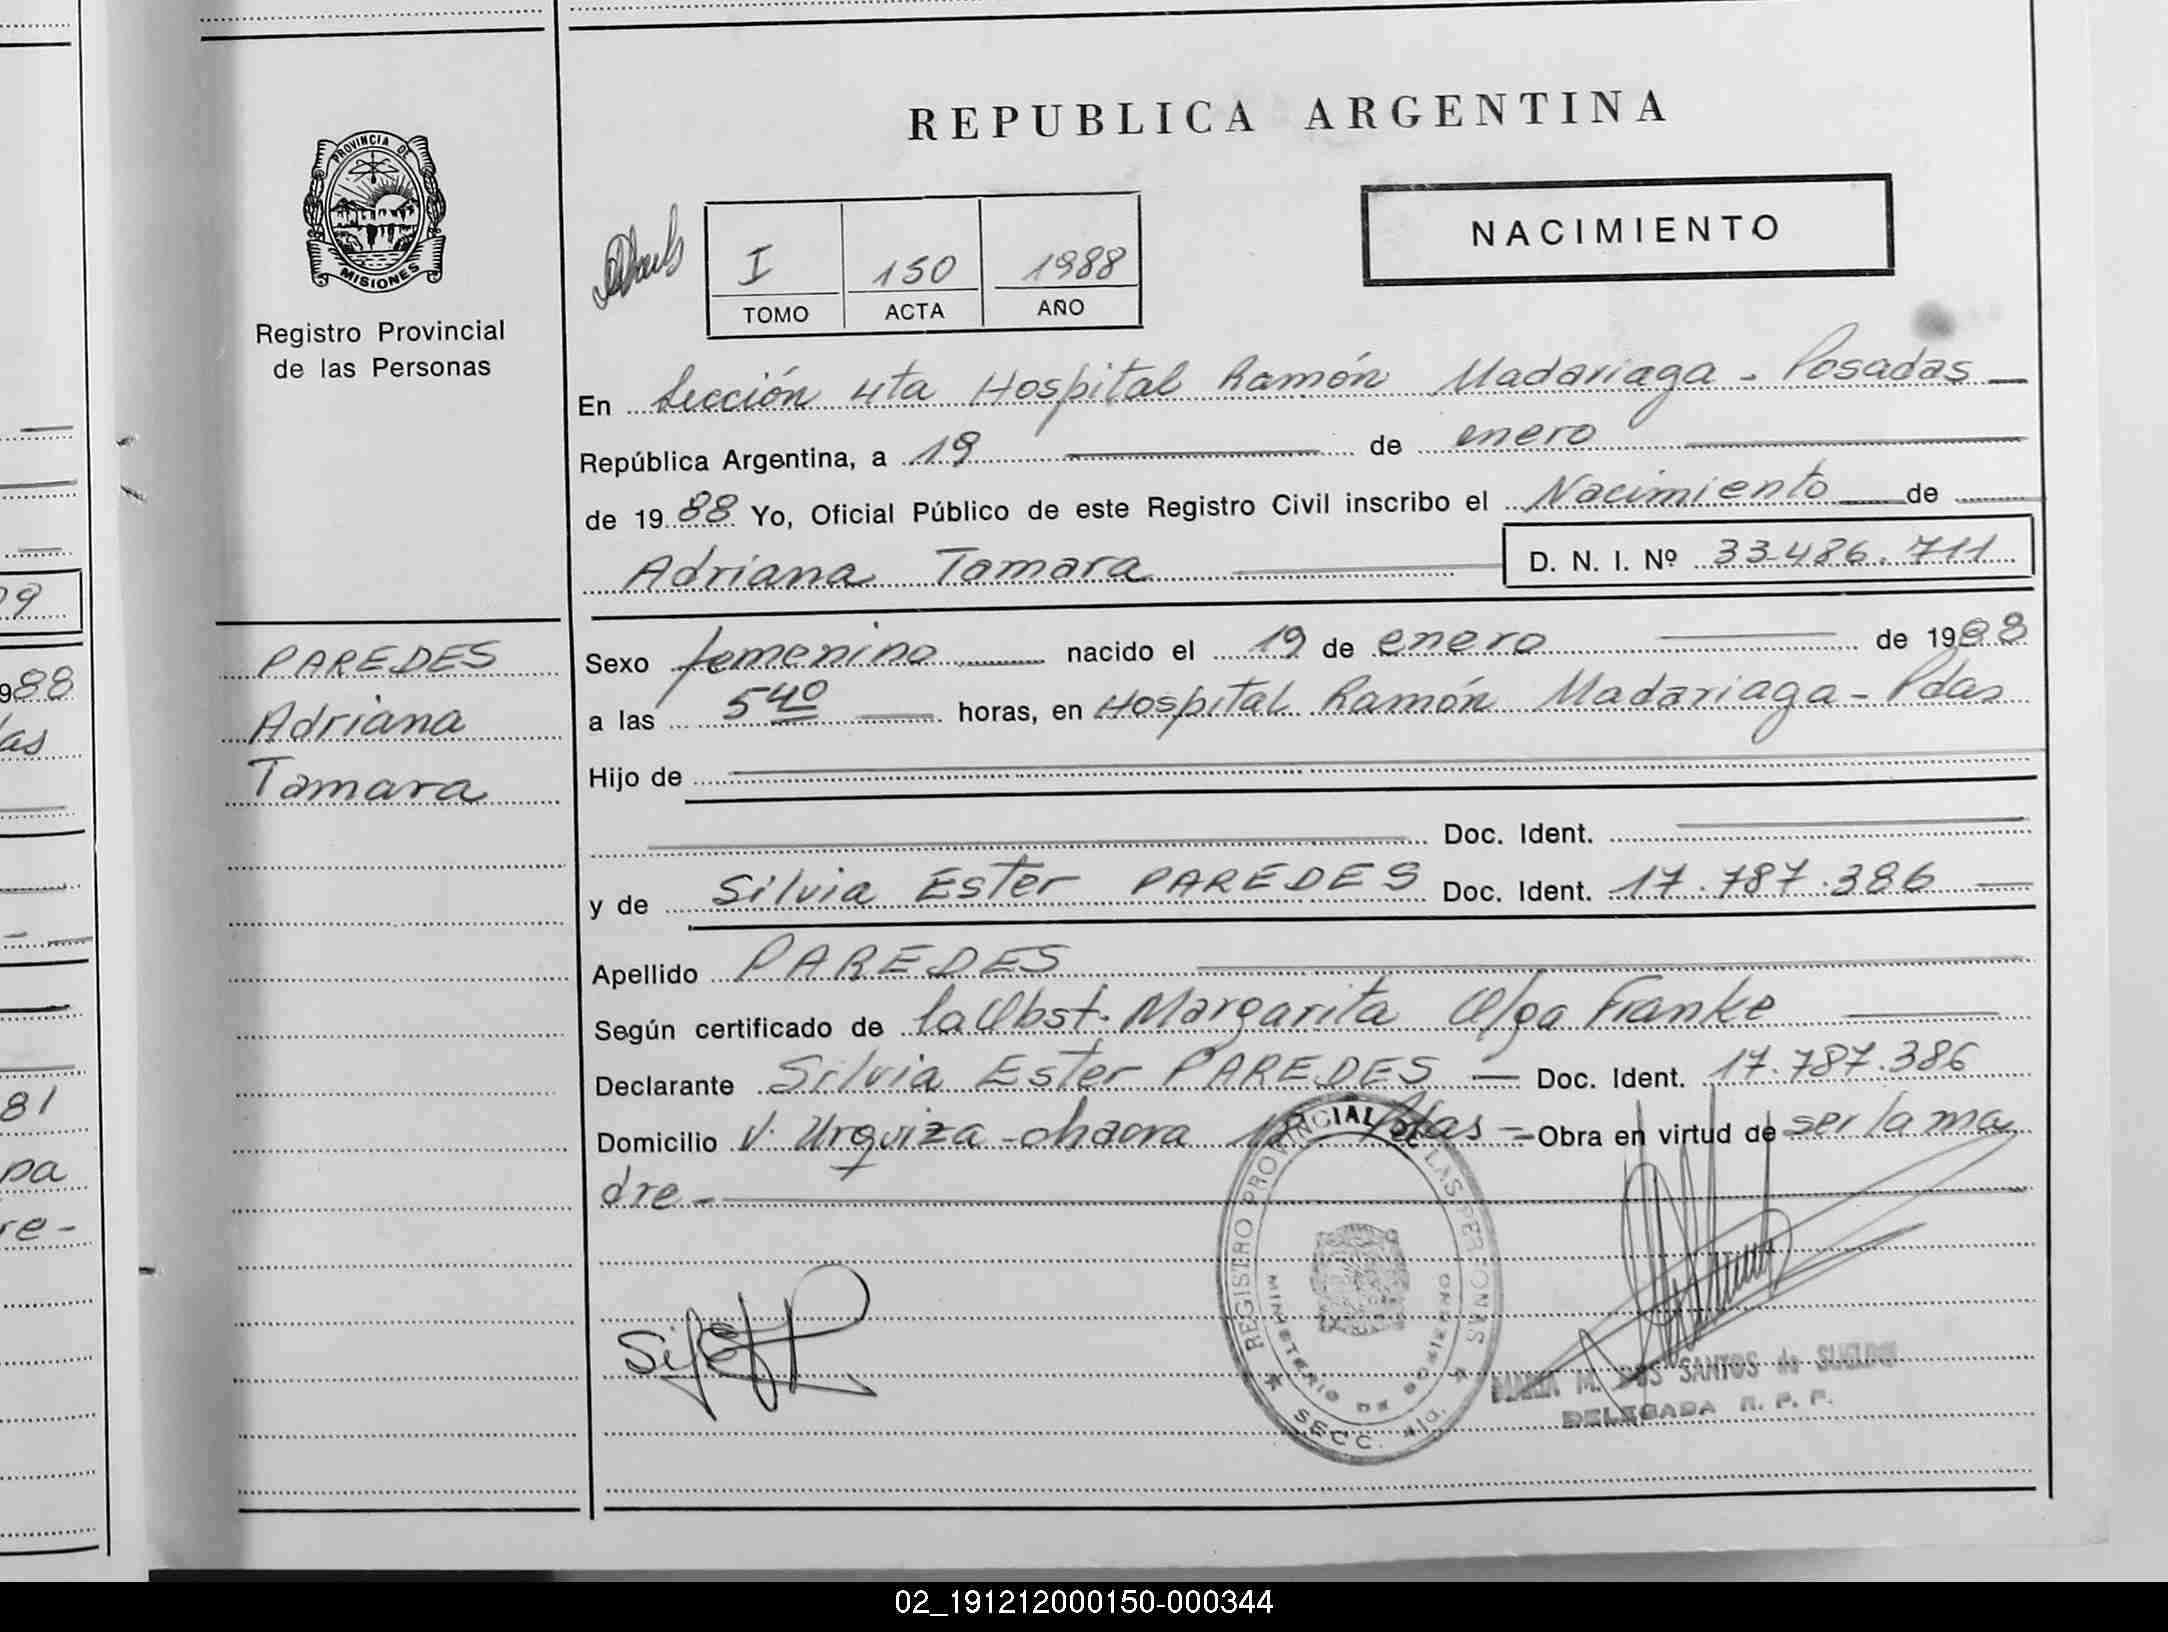 REPUBLICA ARGENTINA
PROVINCIA DE
MISIONES
Registro Provincial
de las Personas
I 150 1988
TOMO ACTA AÑO
NACIMIENTO
En Sección 4ta Hospital Ramón Madariaga - Posadas
República Argentina, a 19 de enero
de 1988 Yo, Oficial Público de este Registro Civil inscribo el Nacimiento de
Adriana Tamara D. N. I. Nº 33.486.711
PAREDES
Adriana
Tamara
Sexo femenino nacido el 19 de enero de 1988
a las 5 40 horas, en Hospital Ramón Madariaga - Pdas
Hijo de
Doc. Ident.
y de Silvia Ester PAREDES Doc. Ident. 17.787.386
Apellido PAREDES
Según certificado de la Obst. Margarita Olga Franke
Declarante Silvia Ester PAREDES - Doc. Ident. 17.787.386
Domicilio V. Urquiza - chacra Pdas - Obra en virtud de ser la ma
dre -
REGISTRO PROVINCIAL DE LAS PERSONAS
MINISTERIO DE GOBIERNO
SECC. 4ta.
MARIA M. DOS SANTOS de
DELEGADA R. P. P.
99
1988
das
81
pa
re-
02_191212000150-000344